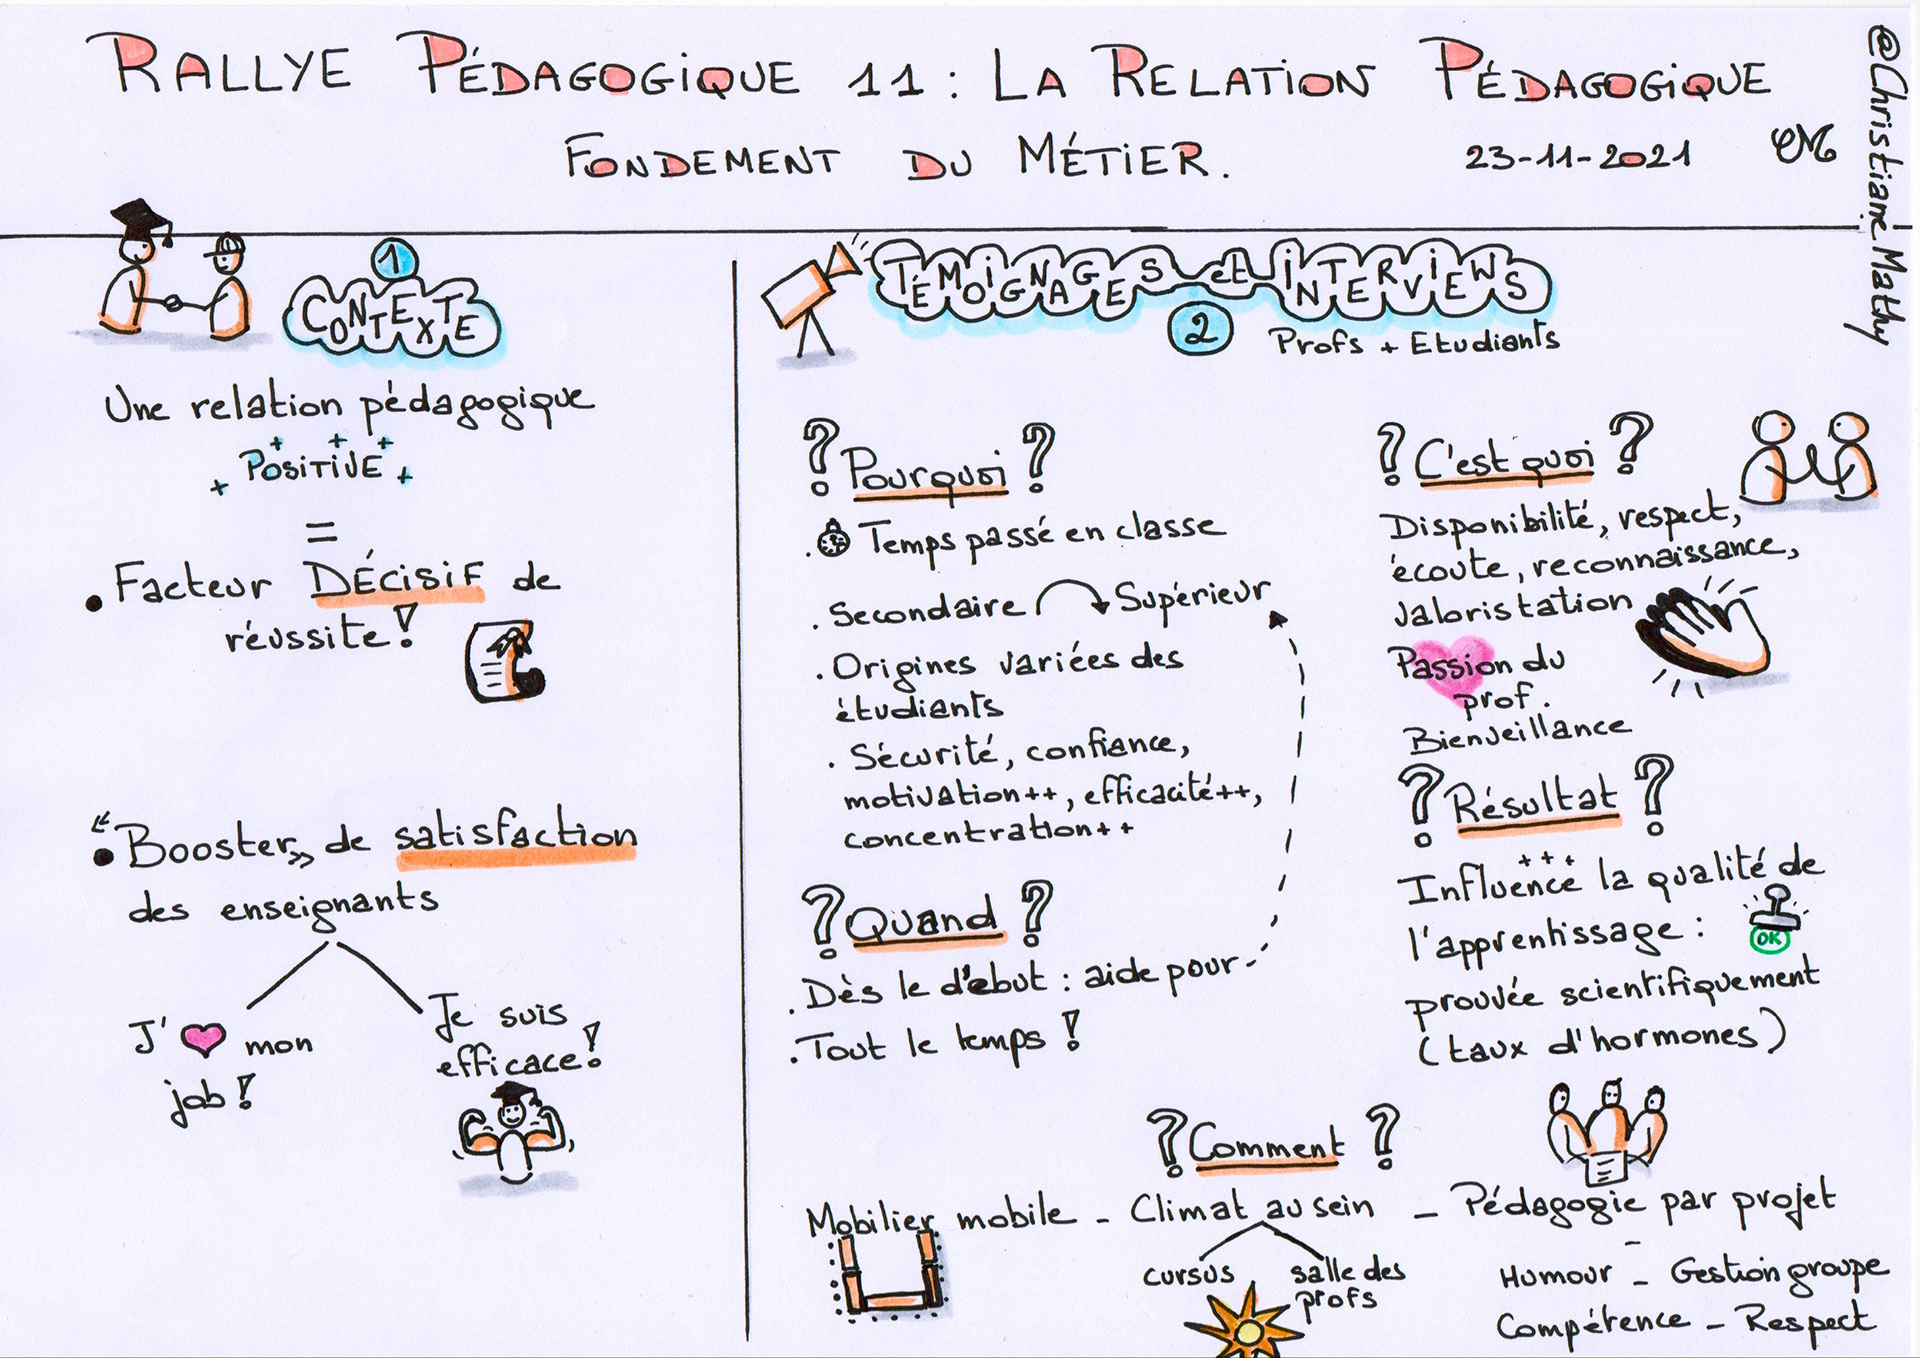 RALLYE PÉDAGOGIQUE 11 : LA RELATION PÉDAGOGIQUE
FONDEMENT DU MÉTIER.
23-11-2021
CM
@Christiane Mathy
1
CONTEXTE
Une relation pédagogique
+ + +
+ POSITIVE +
=
• Facteur DÉCISIF de
réussite !
• "Booster" de satisfaction
des enseignants
J' ♥ mon
job !
Je suis
efficace !
TÉMOIGNAGES et INTERVIEWS
2
Profs + Etudiants
? Pourquoi ?
. Temps passé en classe
. Secondaire Supérieur
. Origines variées des
étudiants
. Sécurité, confiance,
motivation++, efficacité++,
concentration++
? Quand ?
. Dès le début : aide pour
. Tout le temps !
? C'est quoi ?
Disponibilité, respect,
écoute, reconnaissance,
valoristation
Passion du
prof.
Bienveillance
? Résultat ?
+++
Influence la qualité de
l'apprentissage :
OK
prouvée scientifiquement
(taux d'hormones)
? Comment ?
Mobilier mobile - Climat au sein - Pédagogie par projet
cursus
salle des
profs
-
Humour - Gestion groupe
Compétence - Respect